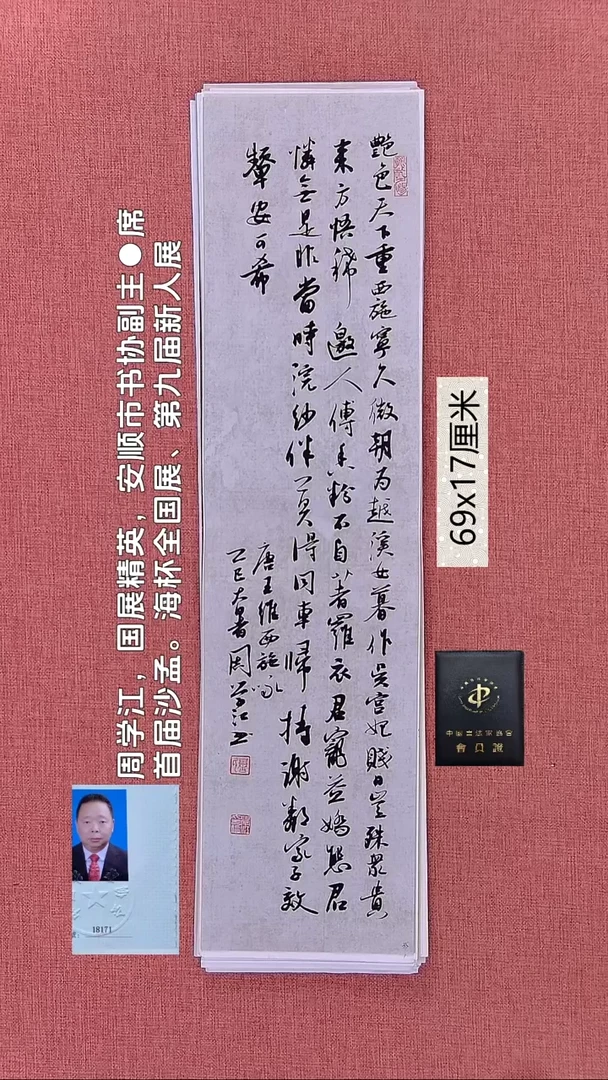 艷色天下重西施寧久微朝为越溪女暮作吴宫妃賤日豈殊衆貴
来方悟稀邀人傅香粉不自著羅衣君寵益嬌態君
憐無是非當時浣紗伴莫得同車歸持謝鄰家子效
顰安可希
唐王維西施咏
乙巳大暑周学江书
周学江，国展精英，安顺市书协副主●席
首届沙孟。海杯全国展、第九届新人展
69x17厘米
會員證
18171